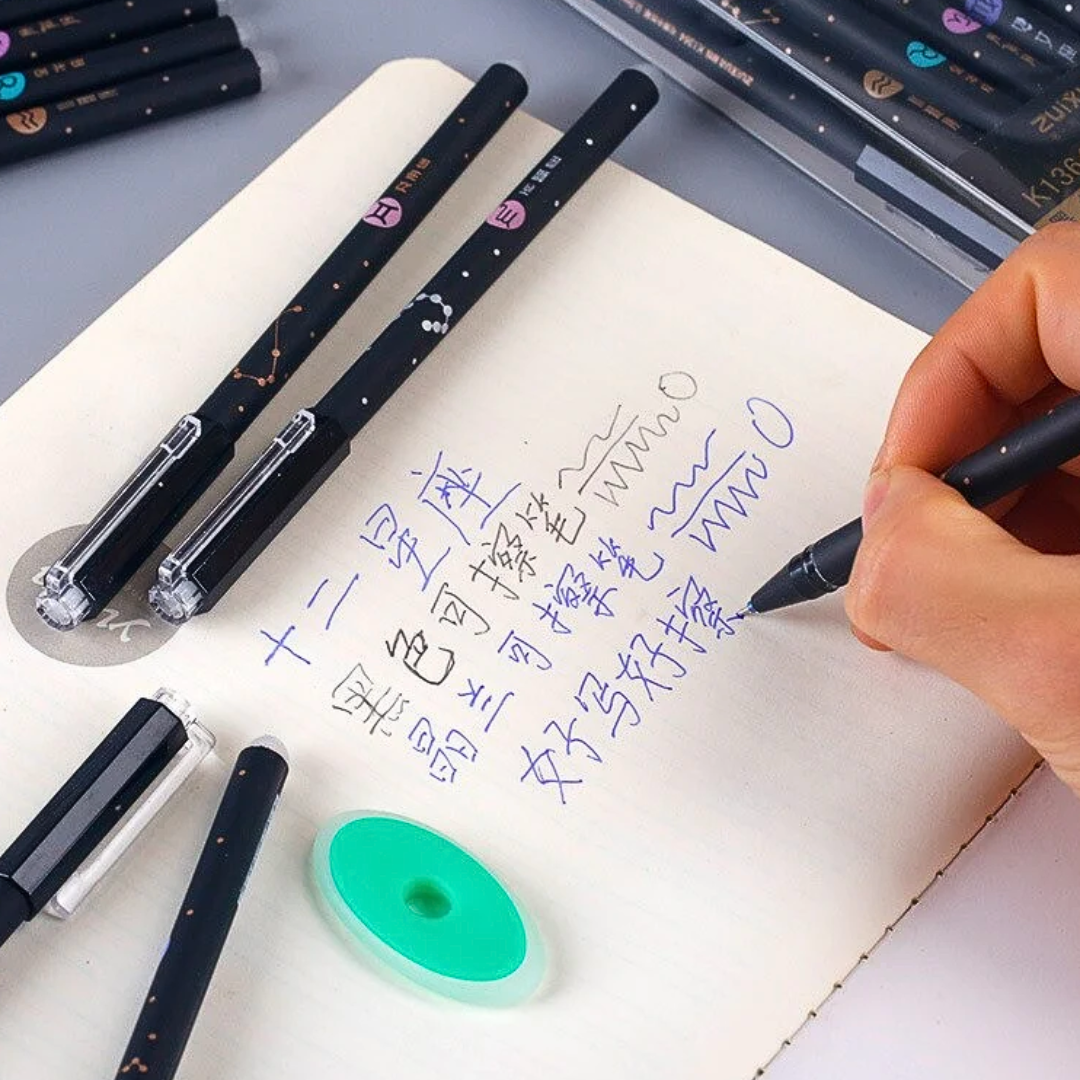 十二星座
黑色可擦笔
晶兰可擦笔
好写好擦
ZUIX
K136